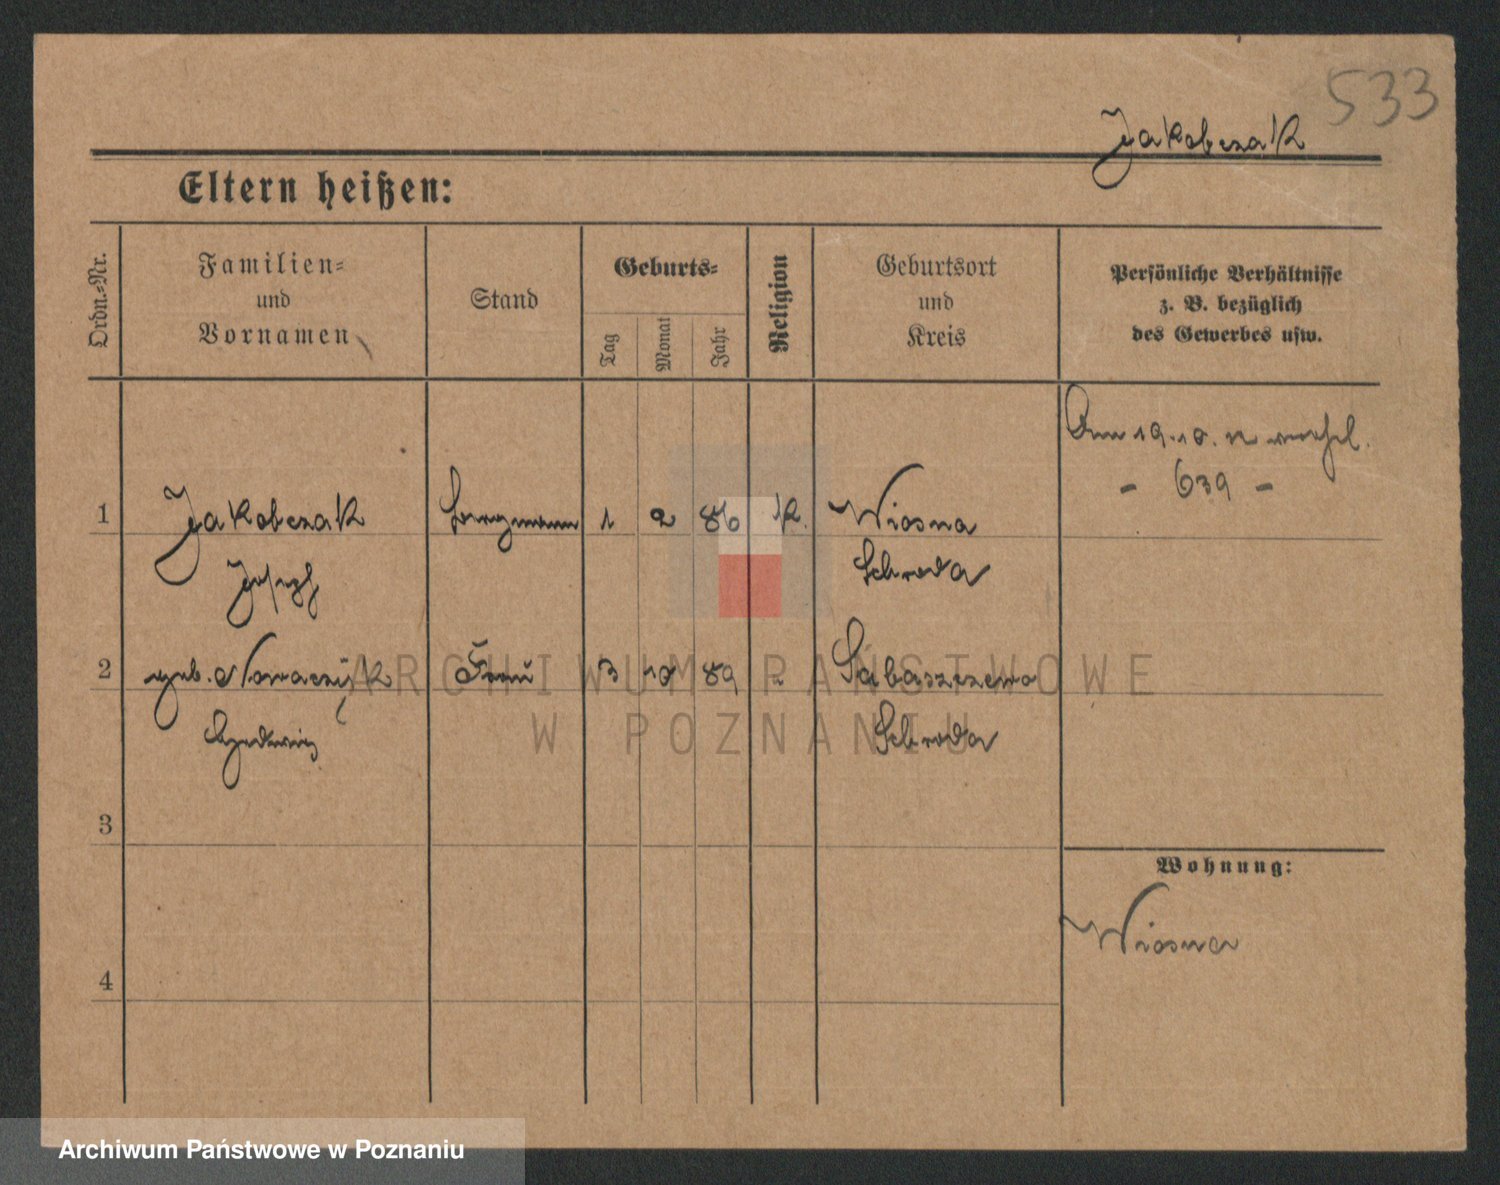 533
Jakobczak
Eltern heißen:
Ordn.-Nr.
Familien-
und
Vornamen
Stand
Geburts-
Tag
Monat
Jahr
Religion
Geburtsort
und
Kreis
Persönliche Verhältnisse
z. B. bezüglich
des Gewerbes usw.
Am 19.10.
- 639 -
1
Jakobczak
Bergmann
1
2
86
K.
Wiosna
Schroda
Josezf
2
geb. Nowaczyk
Frau
3
10
89
Sabaszczewo
Schroda
Hedwig
3
4
Wohnung:
Wiosna
ARCHIWUM PAŃSTWOWE
W POZNANIU
Archiwum Państwowe w Poznaniu